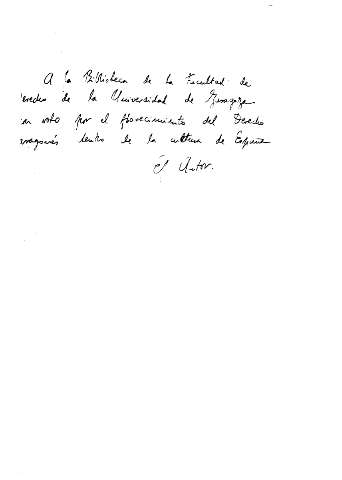 A la Biblioteca de la Facultad de
erecho de la Universidad de Zaragoza
on voto por el florecimiento del Derecho
ragonés dentro de la cultura de España
El Autor.